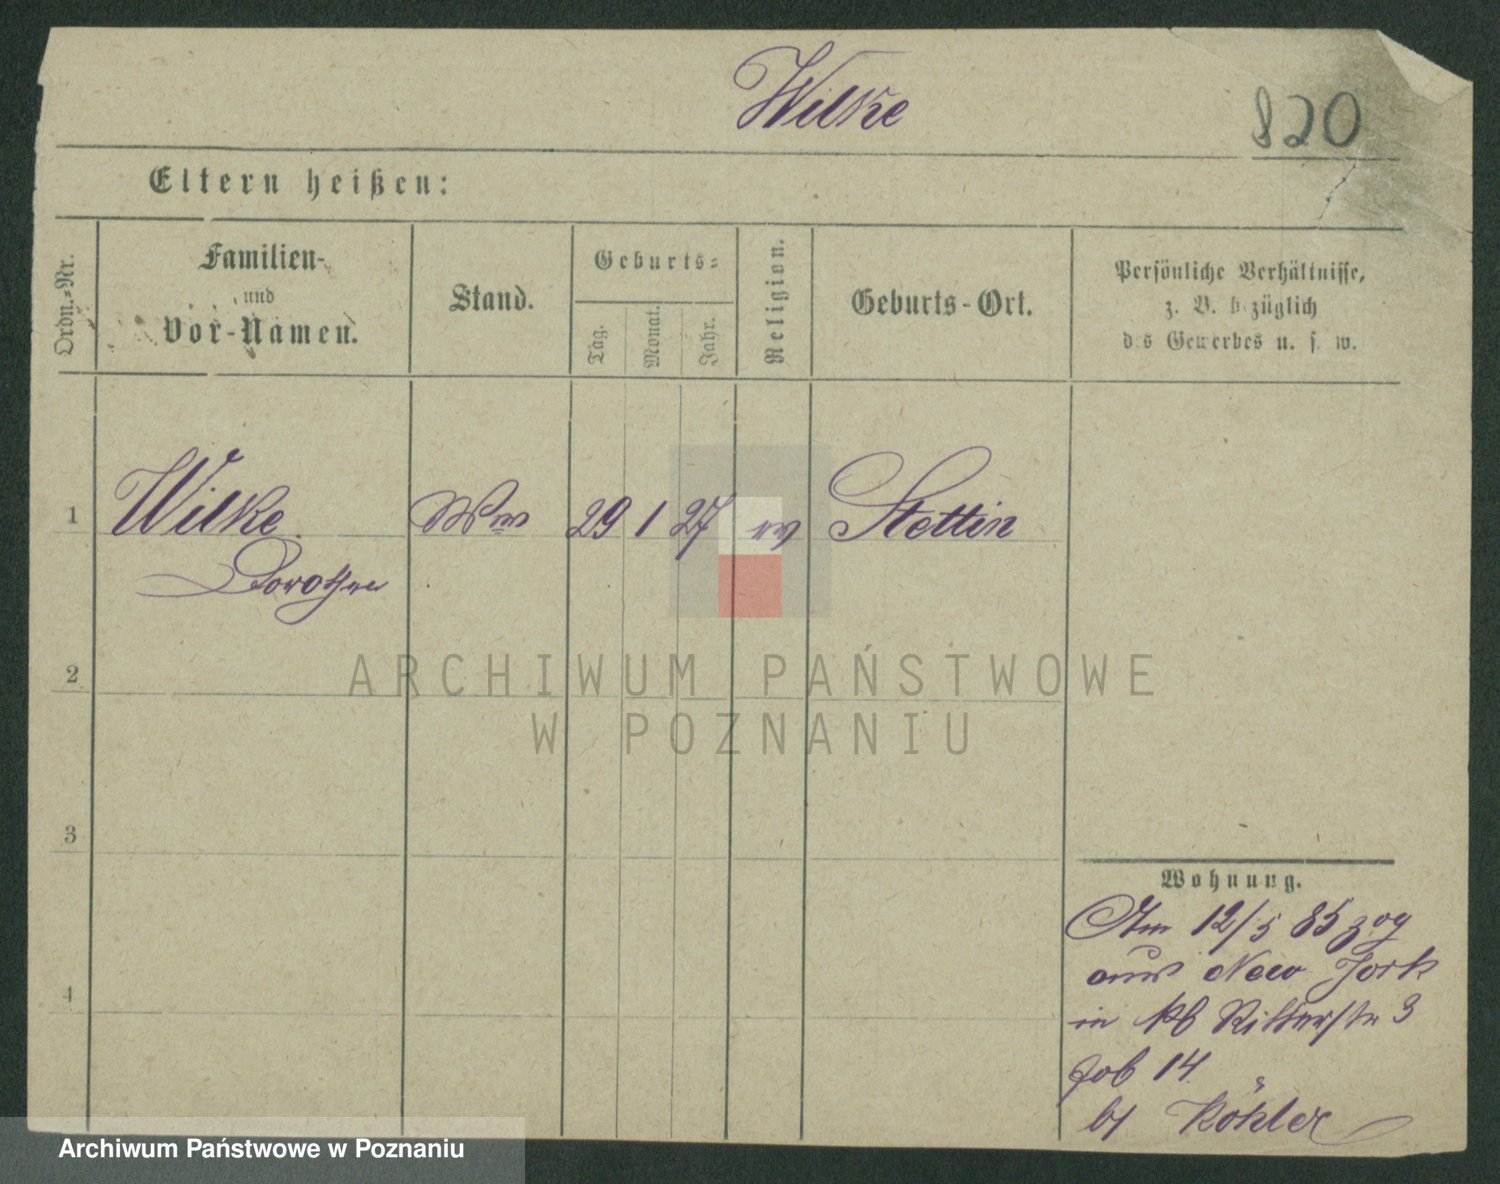 Wilke
820
Eltern heißen:
Ordn.-Nr.
Familien-
und
Vor-Namen.
Stand.
Geburts-
Tag.
Monat.
Jahr.
Religion.
Geburts-Ort.
Persönliche Verhältnisse,
z. B. bezüglich
des Gewerbes u. s. w.
1 Wilke Ww 29 1 27 ev Stettin
Dorothea
2
3
4
Wohnung.
Am 12/5 85 zog
aus New York
in Ritterstr 3
14
bei Köhler
ARCHIWUM PAŃSTWOWE
W POZNANIU
Archiwum Państwowe w Poznaniu